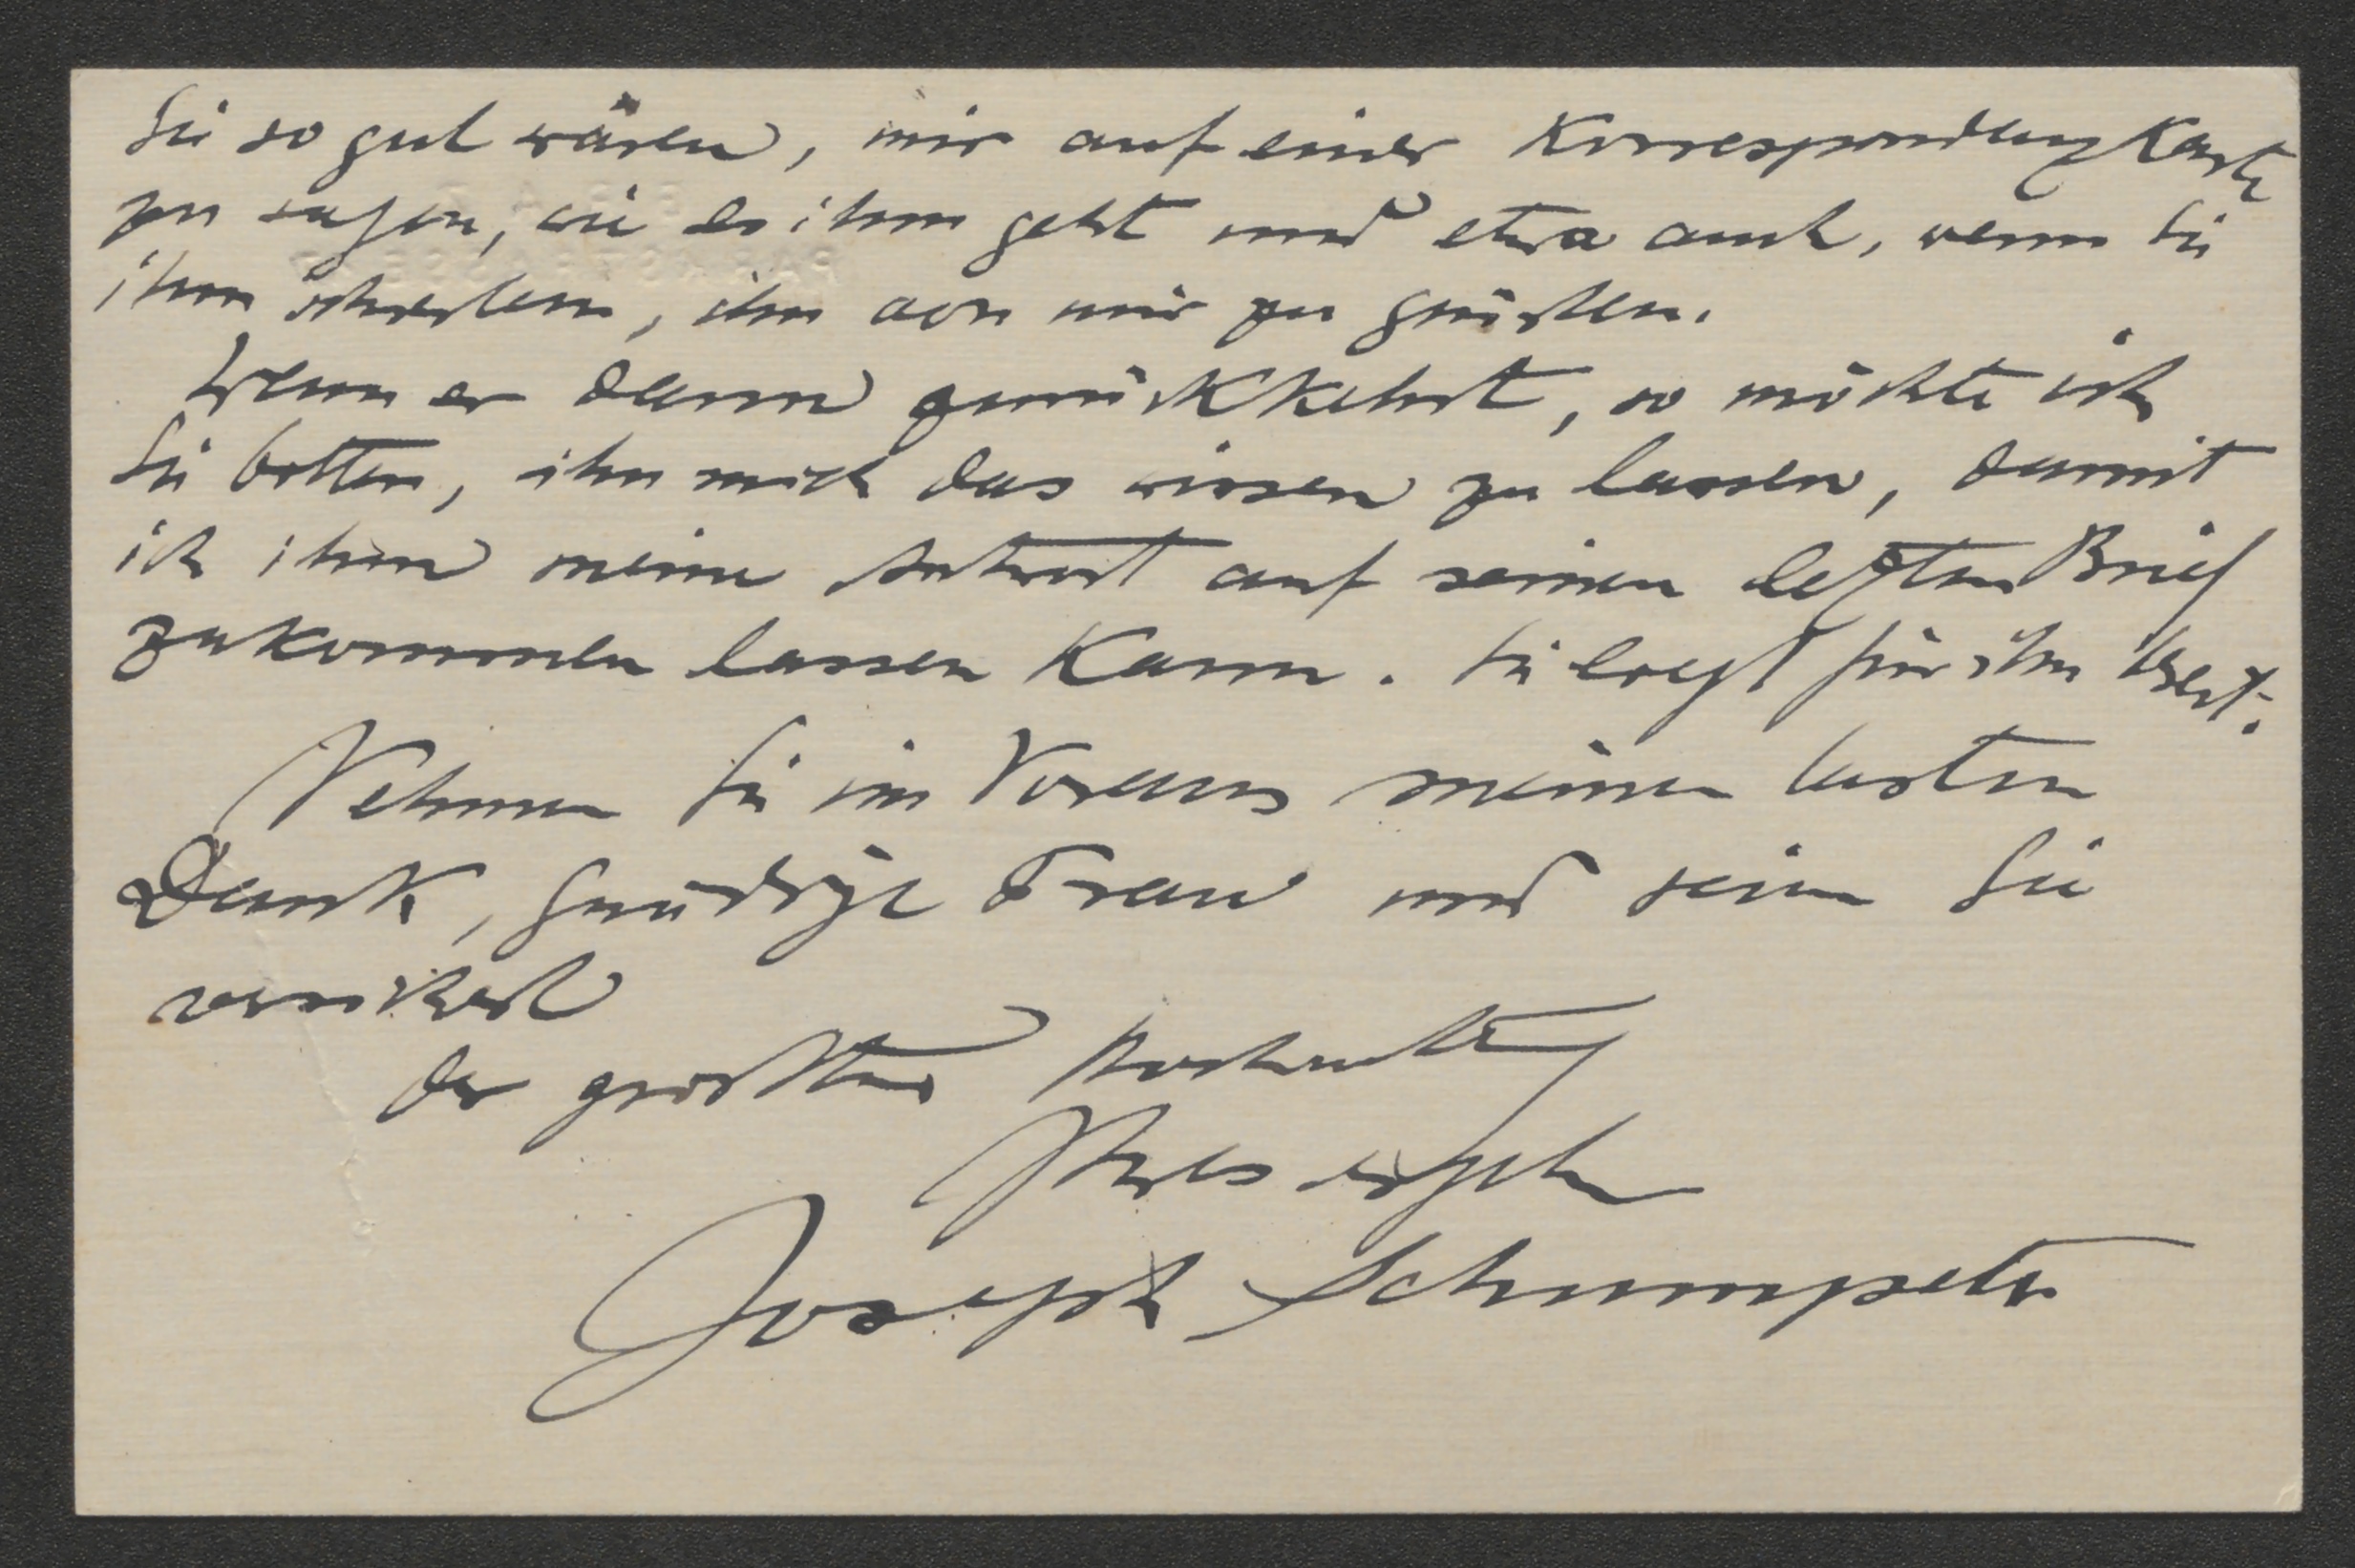 Sie so gut wären, mir auf einer Korrespondenzkarte
zu sagen, wie es ihm geht und etwa auch, wenn Sie
ihm schreiben, ihn von mir zu grüßen.
Wenn er dann zurückkehrt, so möchte ich
Sie bitten, ihn mich das wissen zu lassen, damit
ich ihm meine Antwort auf seinen letzten Brief
zukommen lassen kann. Sie liegt für ihn bereit.
Nehmen Sie im Voraus meinen besten
Dank, gnädige Frau und seien Sie
versichert
der größten Hochachtung
Ihres ergeb
Joseph Schumpeter